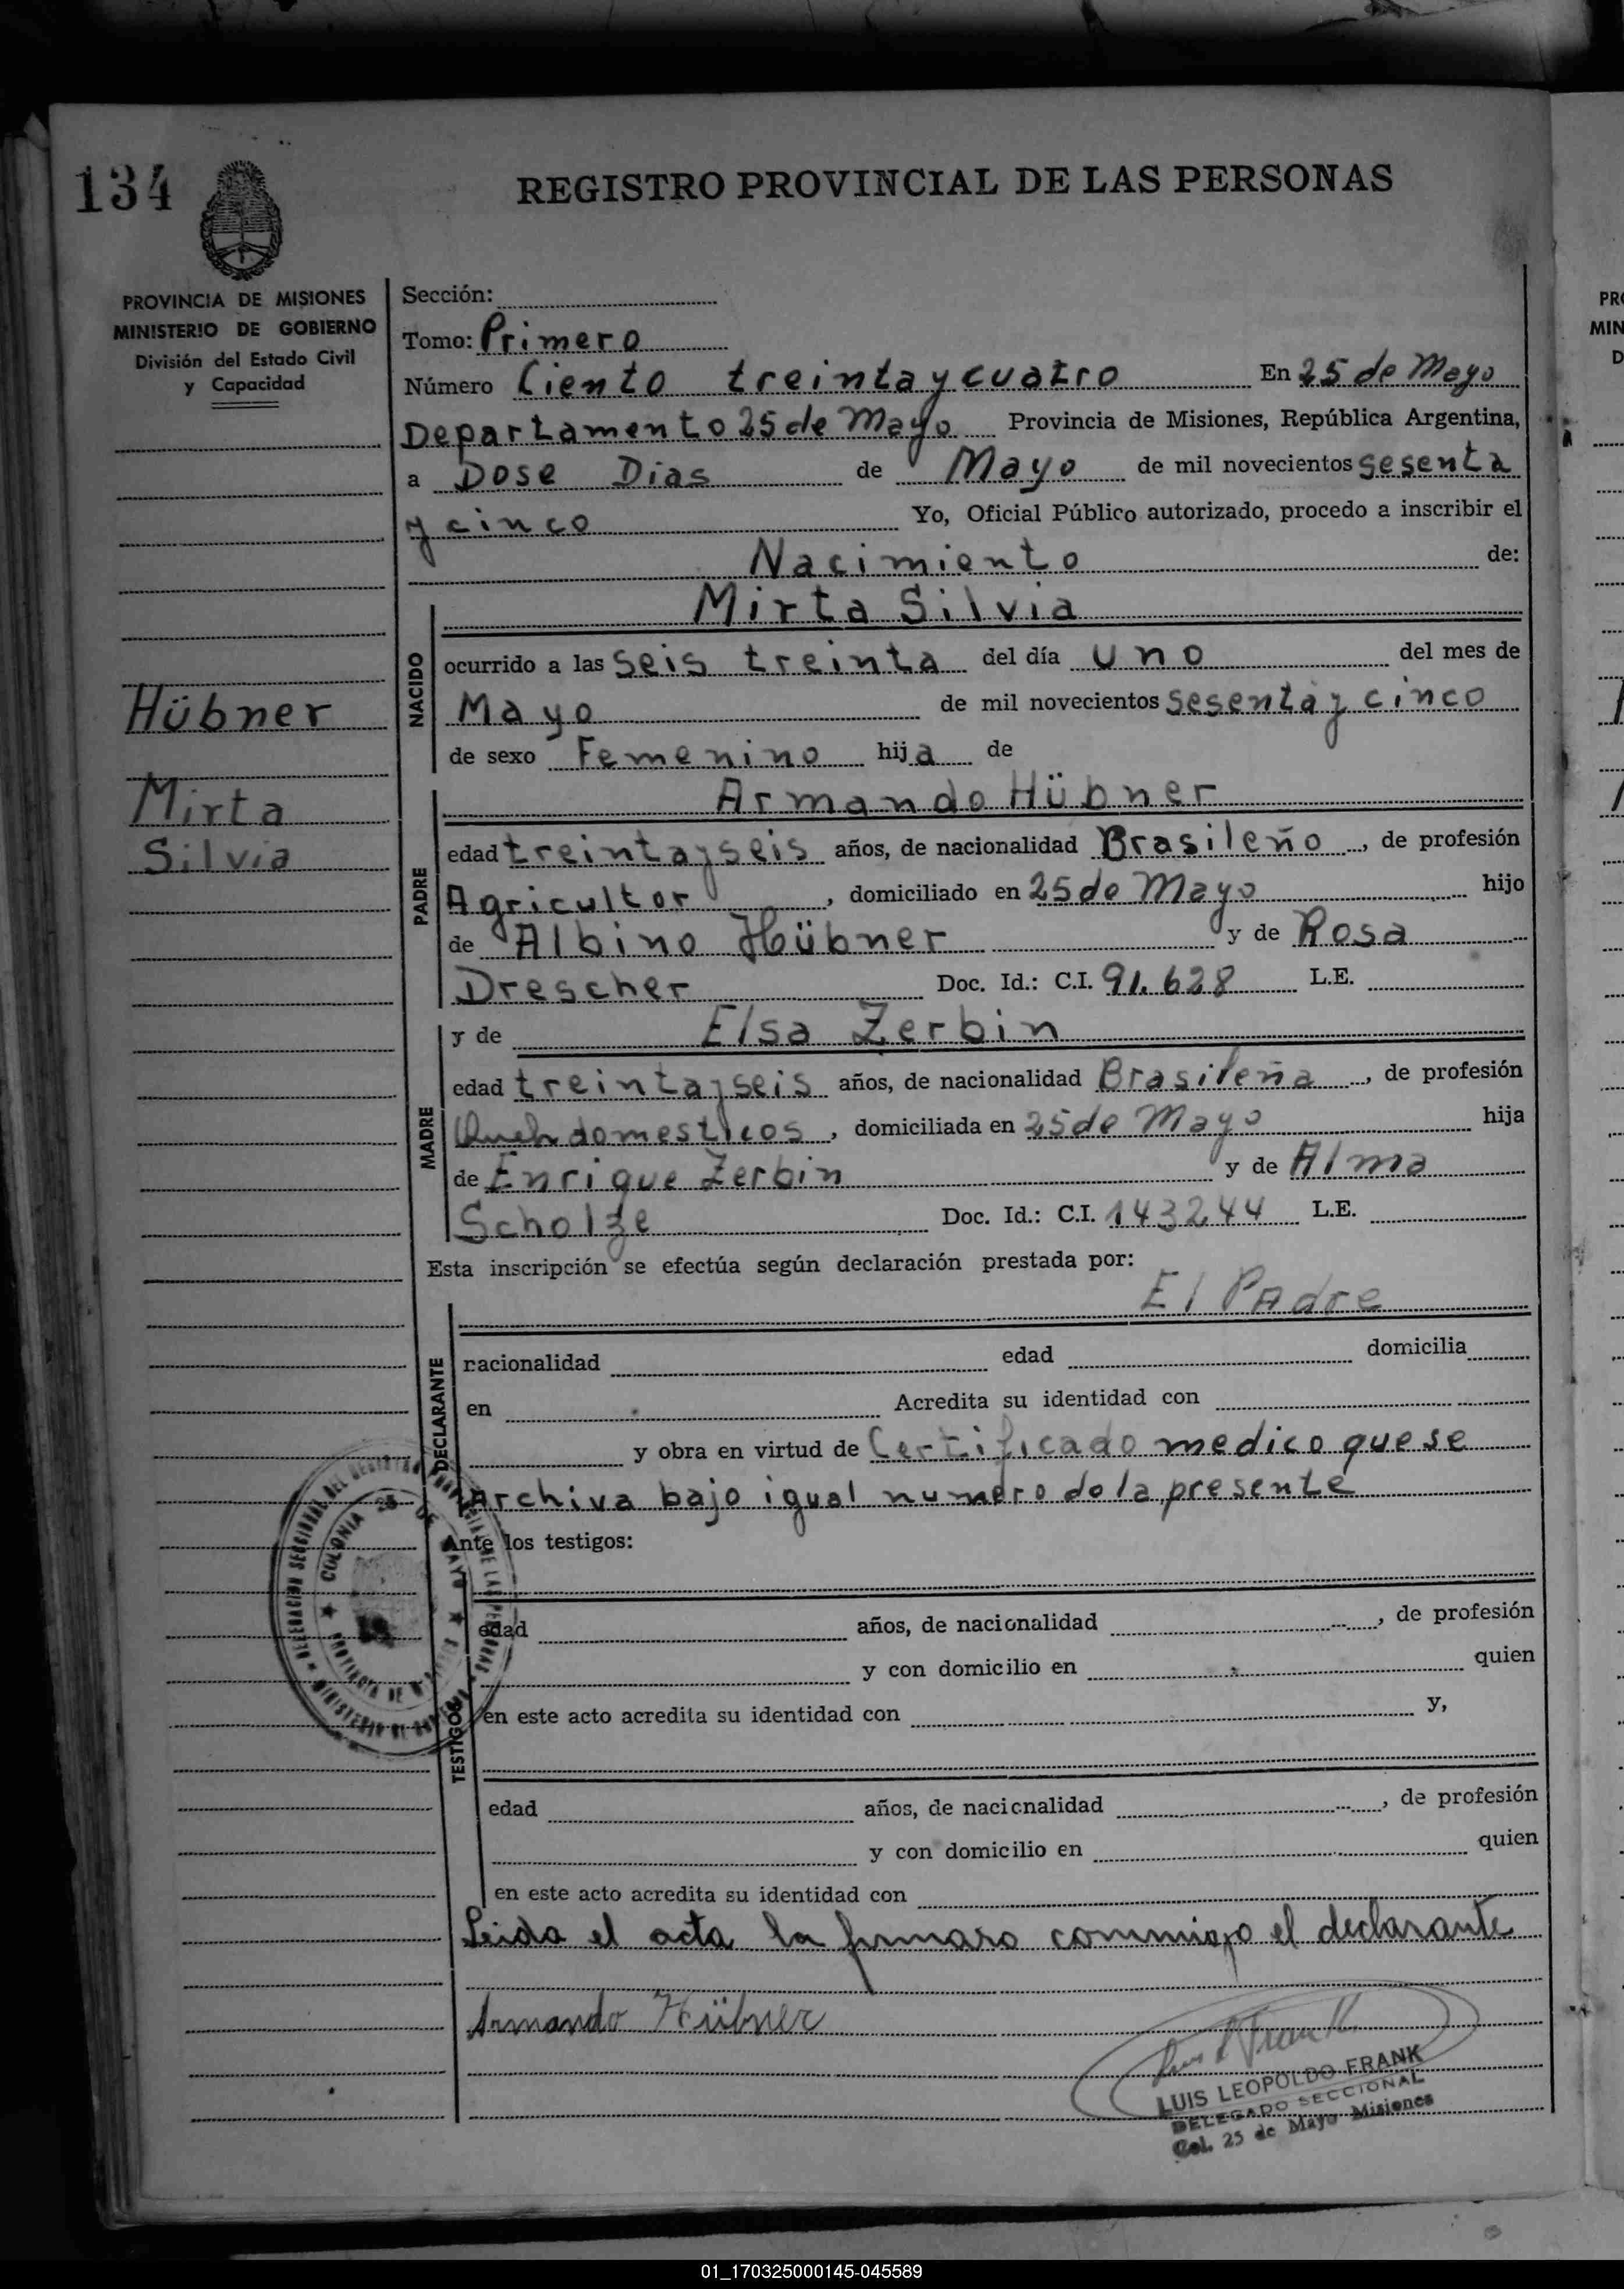 134
REGISTRO PROVINCIAL DE LAS PERSONAS
PROVINCIA DE MISIONES
MINISTERIO DE GOBIERNO
División del Estado Civil
y Capacidad
Hübner
Mirta
Silvia
Sección:
Tomo: Primero
Número Ciento treinta y cuatro En 25 de Mayo
Departamento 25 de Mayo Provincia de Misiones, República Argentina,
a Dose Dias de Mayo de mil novecientos sesenta
y cinco Yo, Oficial Público autorizado, procedo a inscribir el
Nacimiento de:
NACIDO
Mirta Silvia
ocurrido a las seis treinta del día uno del mes de
Mayo de mil novecientos sesenta y cinco
de sexo Femenino hija de
PADRE
Armando Hübner
edad treinta y seis años, de nacionalidad Brasileño, de profesión
Agricultor, domiciliado en 25 de Mayo hijo
de Albino Hübner y de Rosa
Drescher Doc. Id.: C.I. 91.628 L.E.
MADRE
y de Elsa Zerbin
edad treinta y seis años, de nacionalidad Brasileña, de profesión
domesticos, domiciliada en 25 de Mayo hija
de Enrique Zerbin y de Alma
Scholze Doc. Id.: C.I. 143244 L.E.
Esta inscripción se efectúa según declaración prestada por:
El Padre
DECLARANTE
nacionalidad edad domicilia
en Acredita su identidad con
y obra en virtud de Certificado medico que se
Archiva bajo igual numero de la presente
Ante los testigos:
TESTIGOS
edad años, de nacionalidad , de profesión
y con domicilio en quien
en este acto acredita su identidad con y,
edad años, de nacionalidad , de profesión
y con domicilio en quien
en este acto acredita su identidad con
Leida el acta la firmaro conmigo el declarante
Armando Hübner
LUIS LEOPOLDO FRANK
DELEGADO SECCIONAL
Col. 25 de Mayo Misiones
COLONIA 25 DE MAYO
01_170325000145-045589